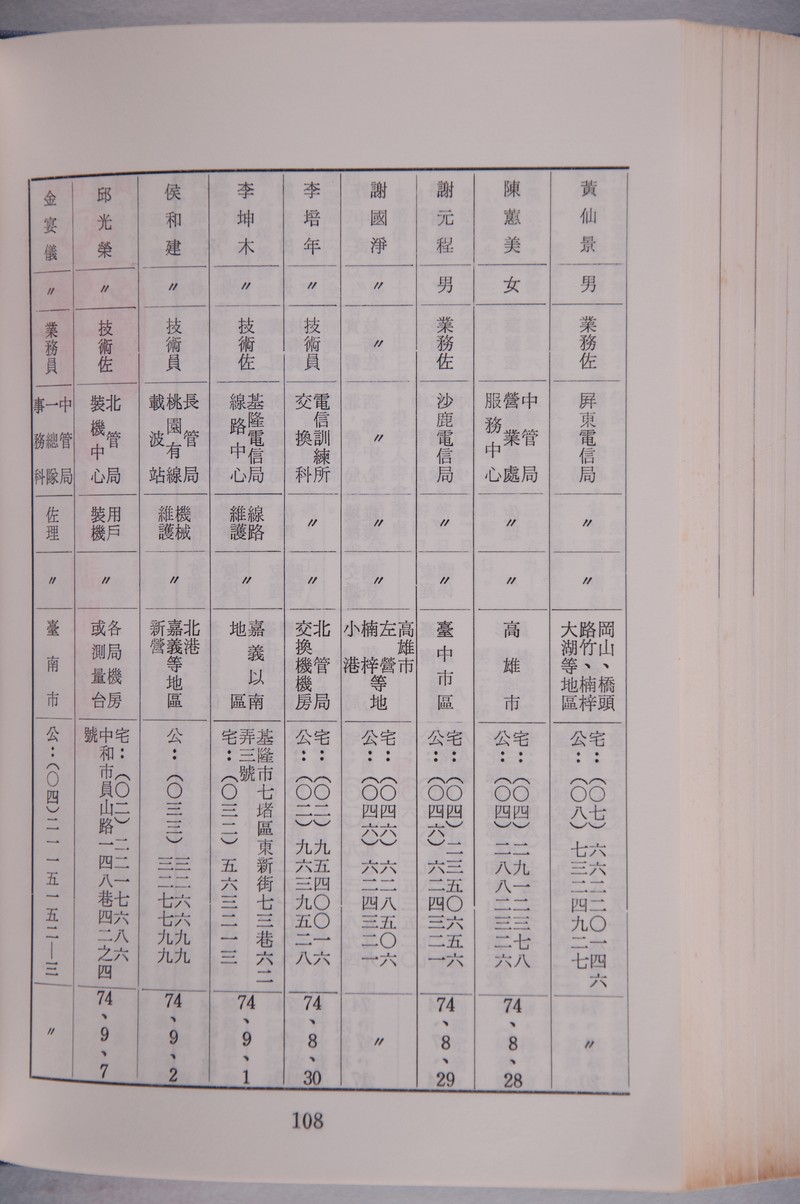 黃仙景
男
業務佐
屏東電信局
〃
〃
岡山、橋頭
路竹、楠梓
大湖等地區
宅：（〇七）六六二〇一四六
公：（〇八七）七三二四九二七
〃
陳蕙美
女
中管局
營業處
服務中心
〃
〃
高雄市
宅：（〇四）二九一二三七八
公：（〇四）二八八二三二六
74、8、28
謝元程
男
業務佐
沙鹿電信局
〃
〃
臺中市區
宅：（〇四）二三五〇六五六
公：（〇四六）六二四三二一
74、8、29
謝國淨
〃
〃
〃
〃
〃
高雄市
左營
楠梓等地
小港
宅：（〇四六）六二八五〇六
公：（〇四六）六二四三二一
〃
李培年
〃
技術員
電信訓練所
交換科
〃
〃
北管局
交換機機房
宅：（〇二）九五四〇〇一六
公：（〇二）九六三九五二八
74、8、30
李坤木
〃
技術佐
基隆電信局
線路中心
線路
維護
〃
嘉義以南
地區
基隆市七堵區東新街七三巷六二
弄三號
宅：（〇三二）五六三二一三
74、9、1
侯和建
〃
技術員
長管局
桃園有線
載波站
機械
維護
〃
北港
嘉義等地區
新營
公：（〇三三）三二六六九九
三二七七九九
74、9、2
邱光榮
〃
技術佐
北管局
裝機中心
用戶
裝機
〃
各局機房
或測量台
宅：（〇二）二二一七六八六
中和市員山路一四八巷四二之四
號
74、9、7
金宴儀
〃
業務員
中管局
一總隊
事務科
佐理
〃
臺南市
公：（〇四）二一一五一五二—三
〃
108